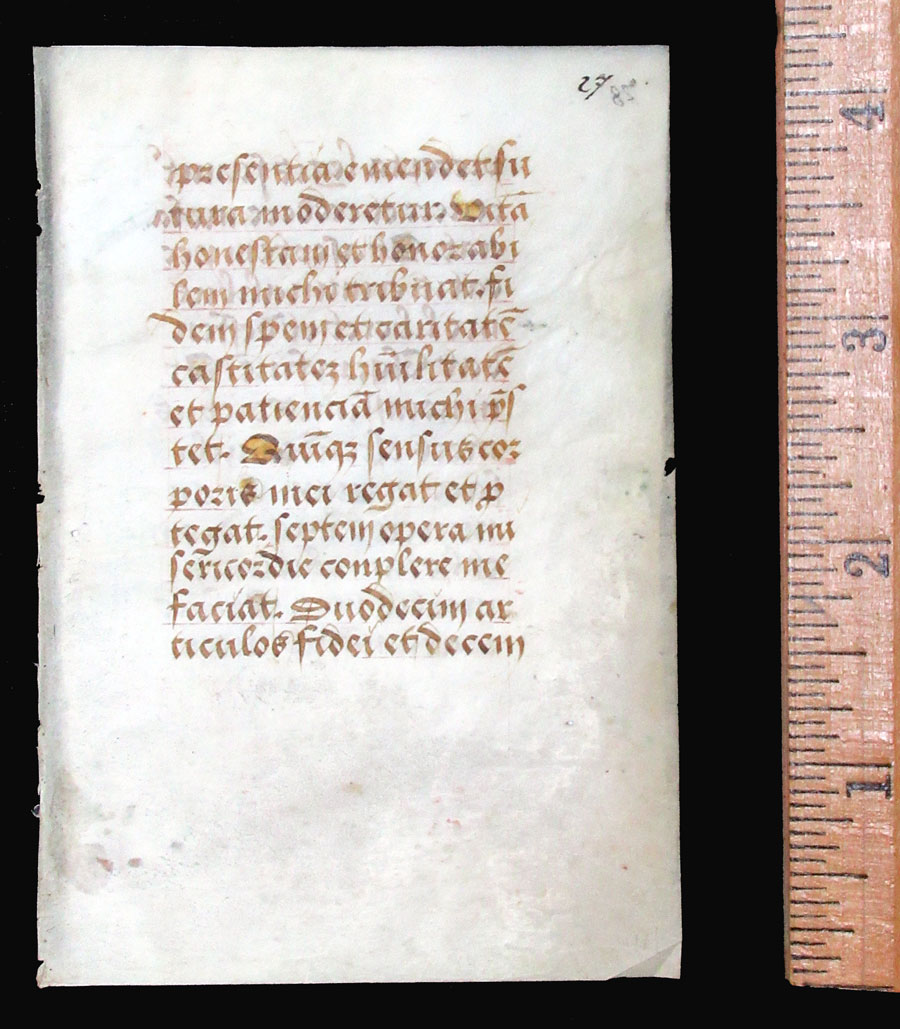 27 85
presentia emendet fu
tura moderetur. Vitā
honestam et honorabi
lem michi tribuat. fi
dem spem et caritatē
castitatez hūilitatē
et patienciā michi p̄s
tet. Quīqz sensus cor
poris mei regat et ꝓ
tegat. septem opera mi
sericordie conplere me
faciat. Duodecim ar
ticulos fidei et decem
4
3
2
1